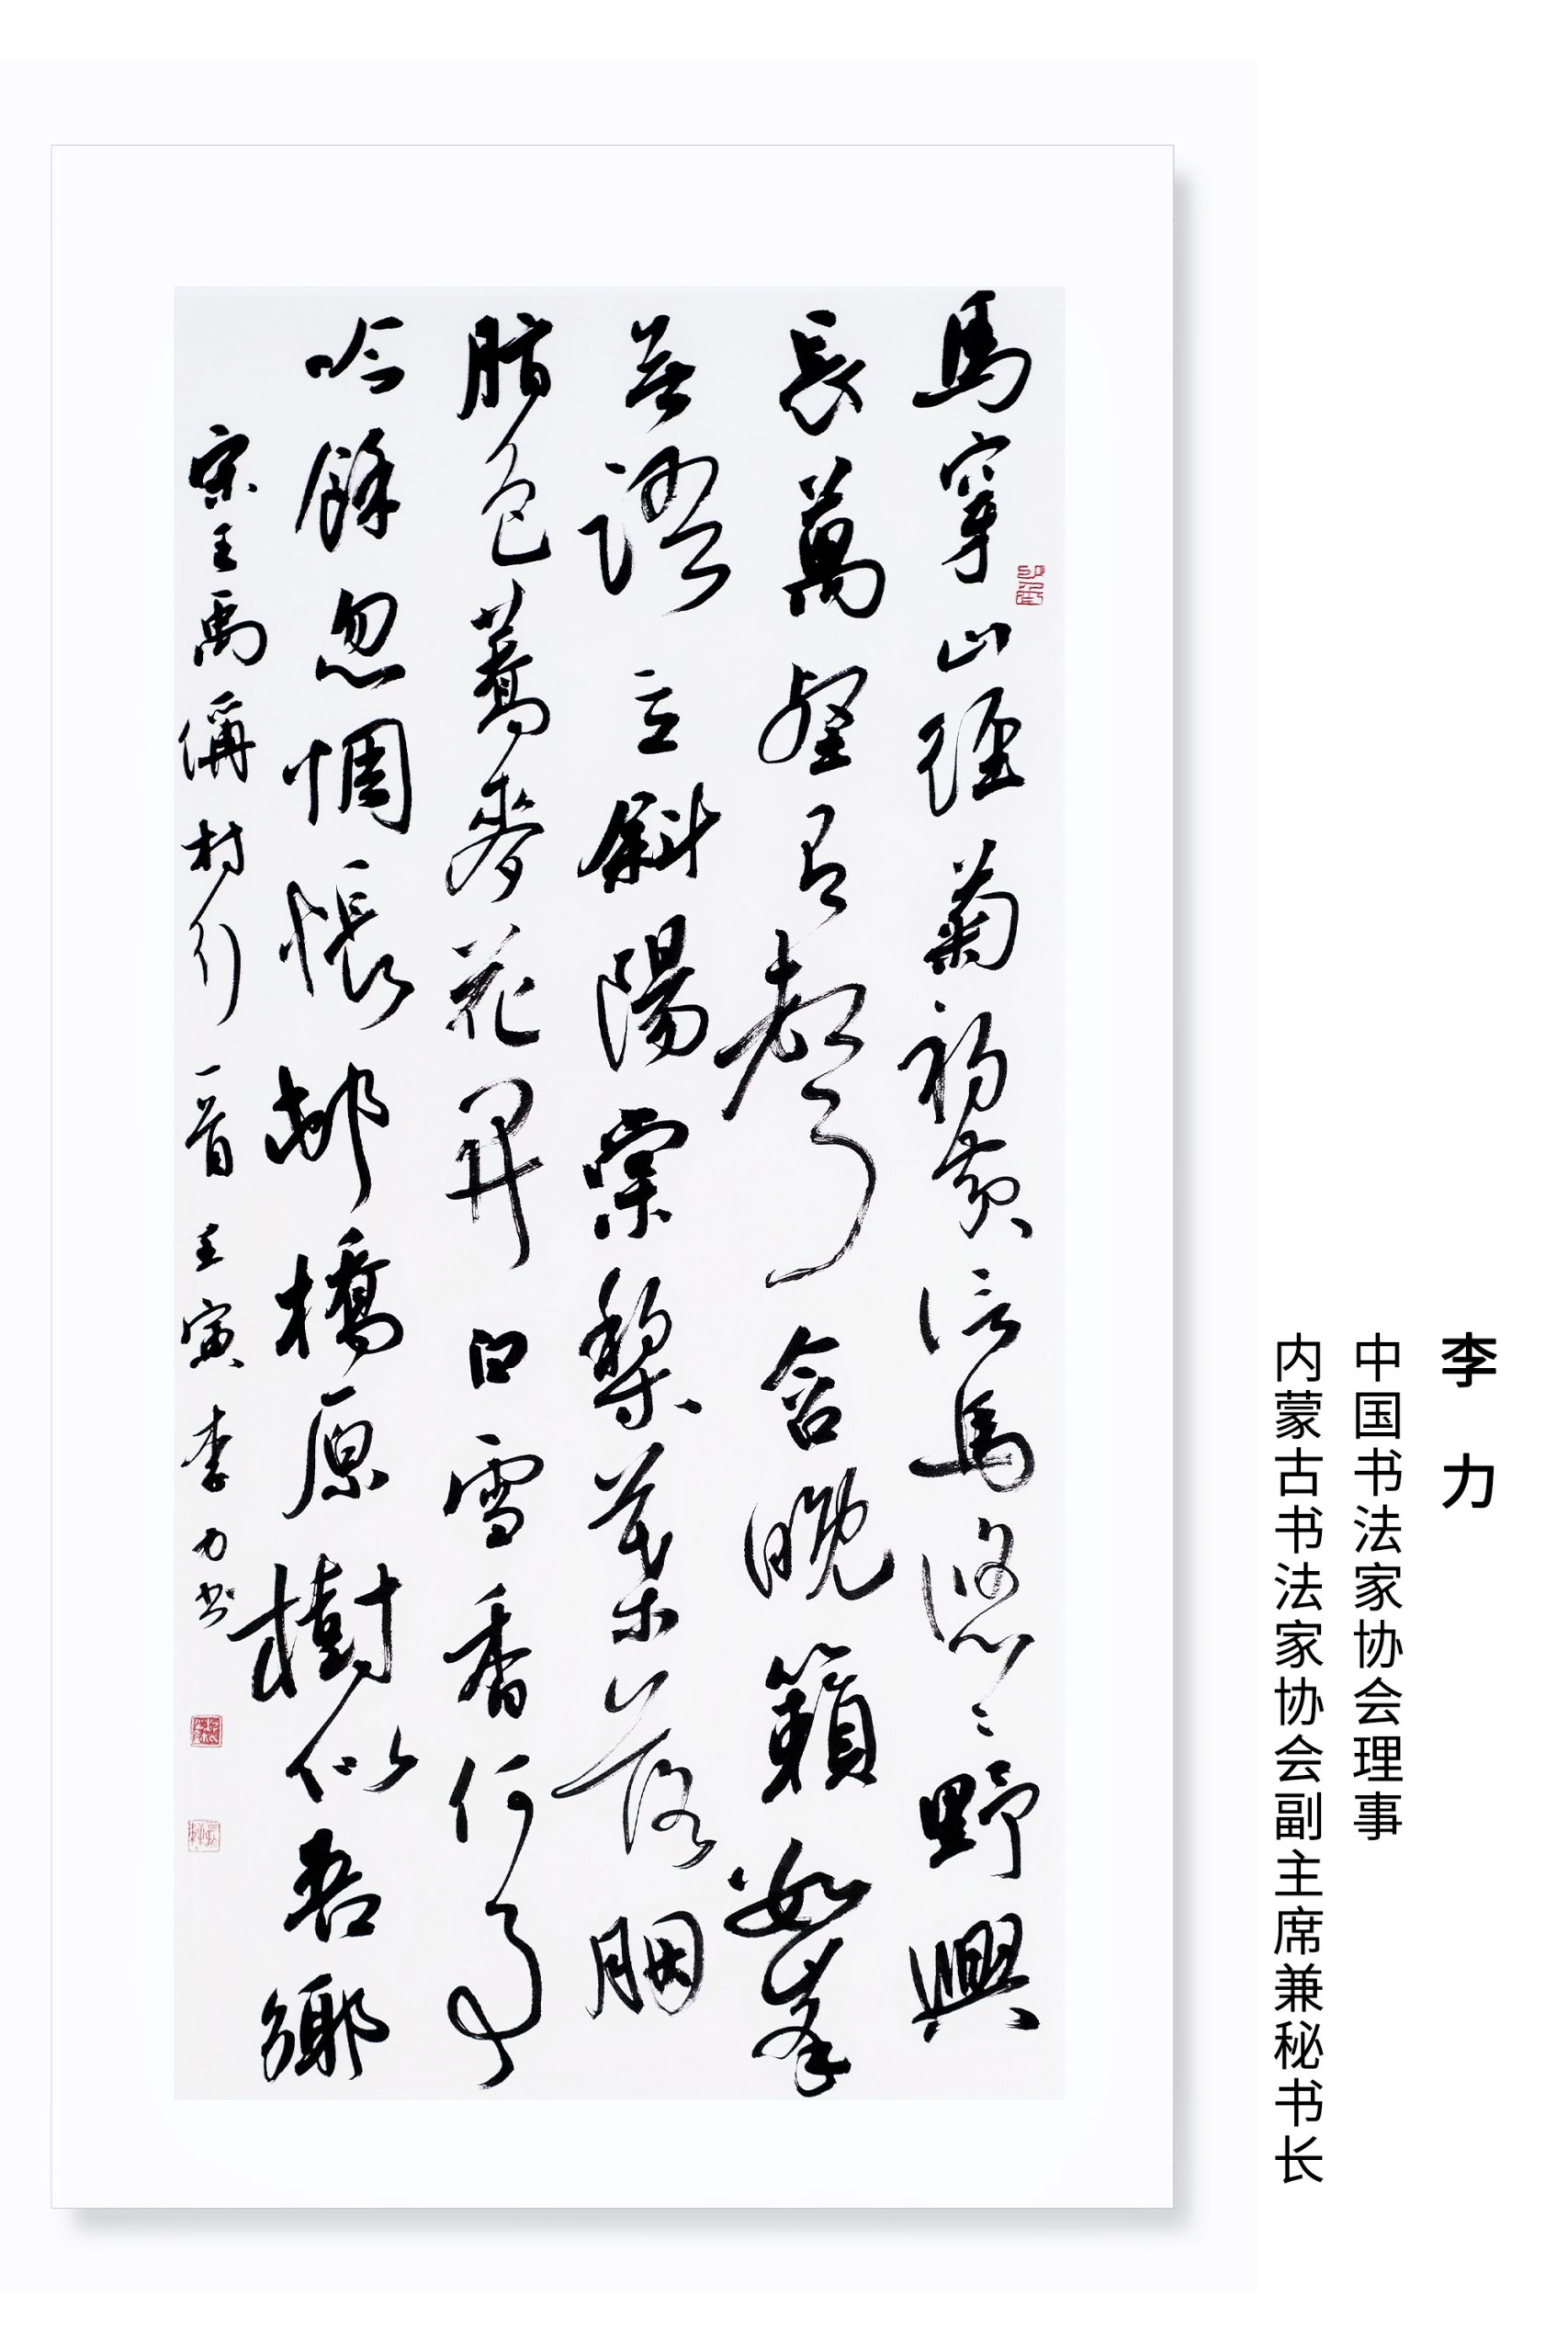 李力
中国书法家协会理事
内蒙古书法家协会副主席兼秘书长
馬穿山徑菊初黃信馬悠〻野興
長萬壑有聲含晚籟數峯
無語立斜陽棠梨葉落胭
脂色蕎麥花開白雪香何事
吟餘忽惆悵邨橋原樹似吾鄉
宋王禹偁村行一首壬寅李力书